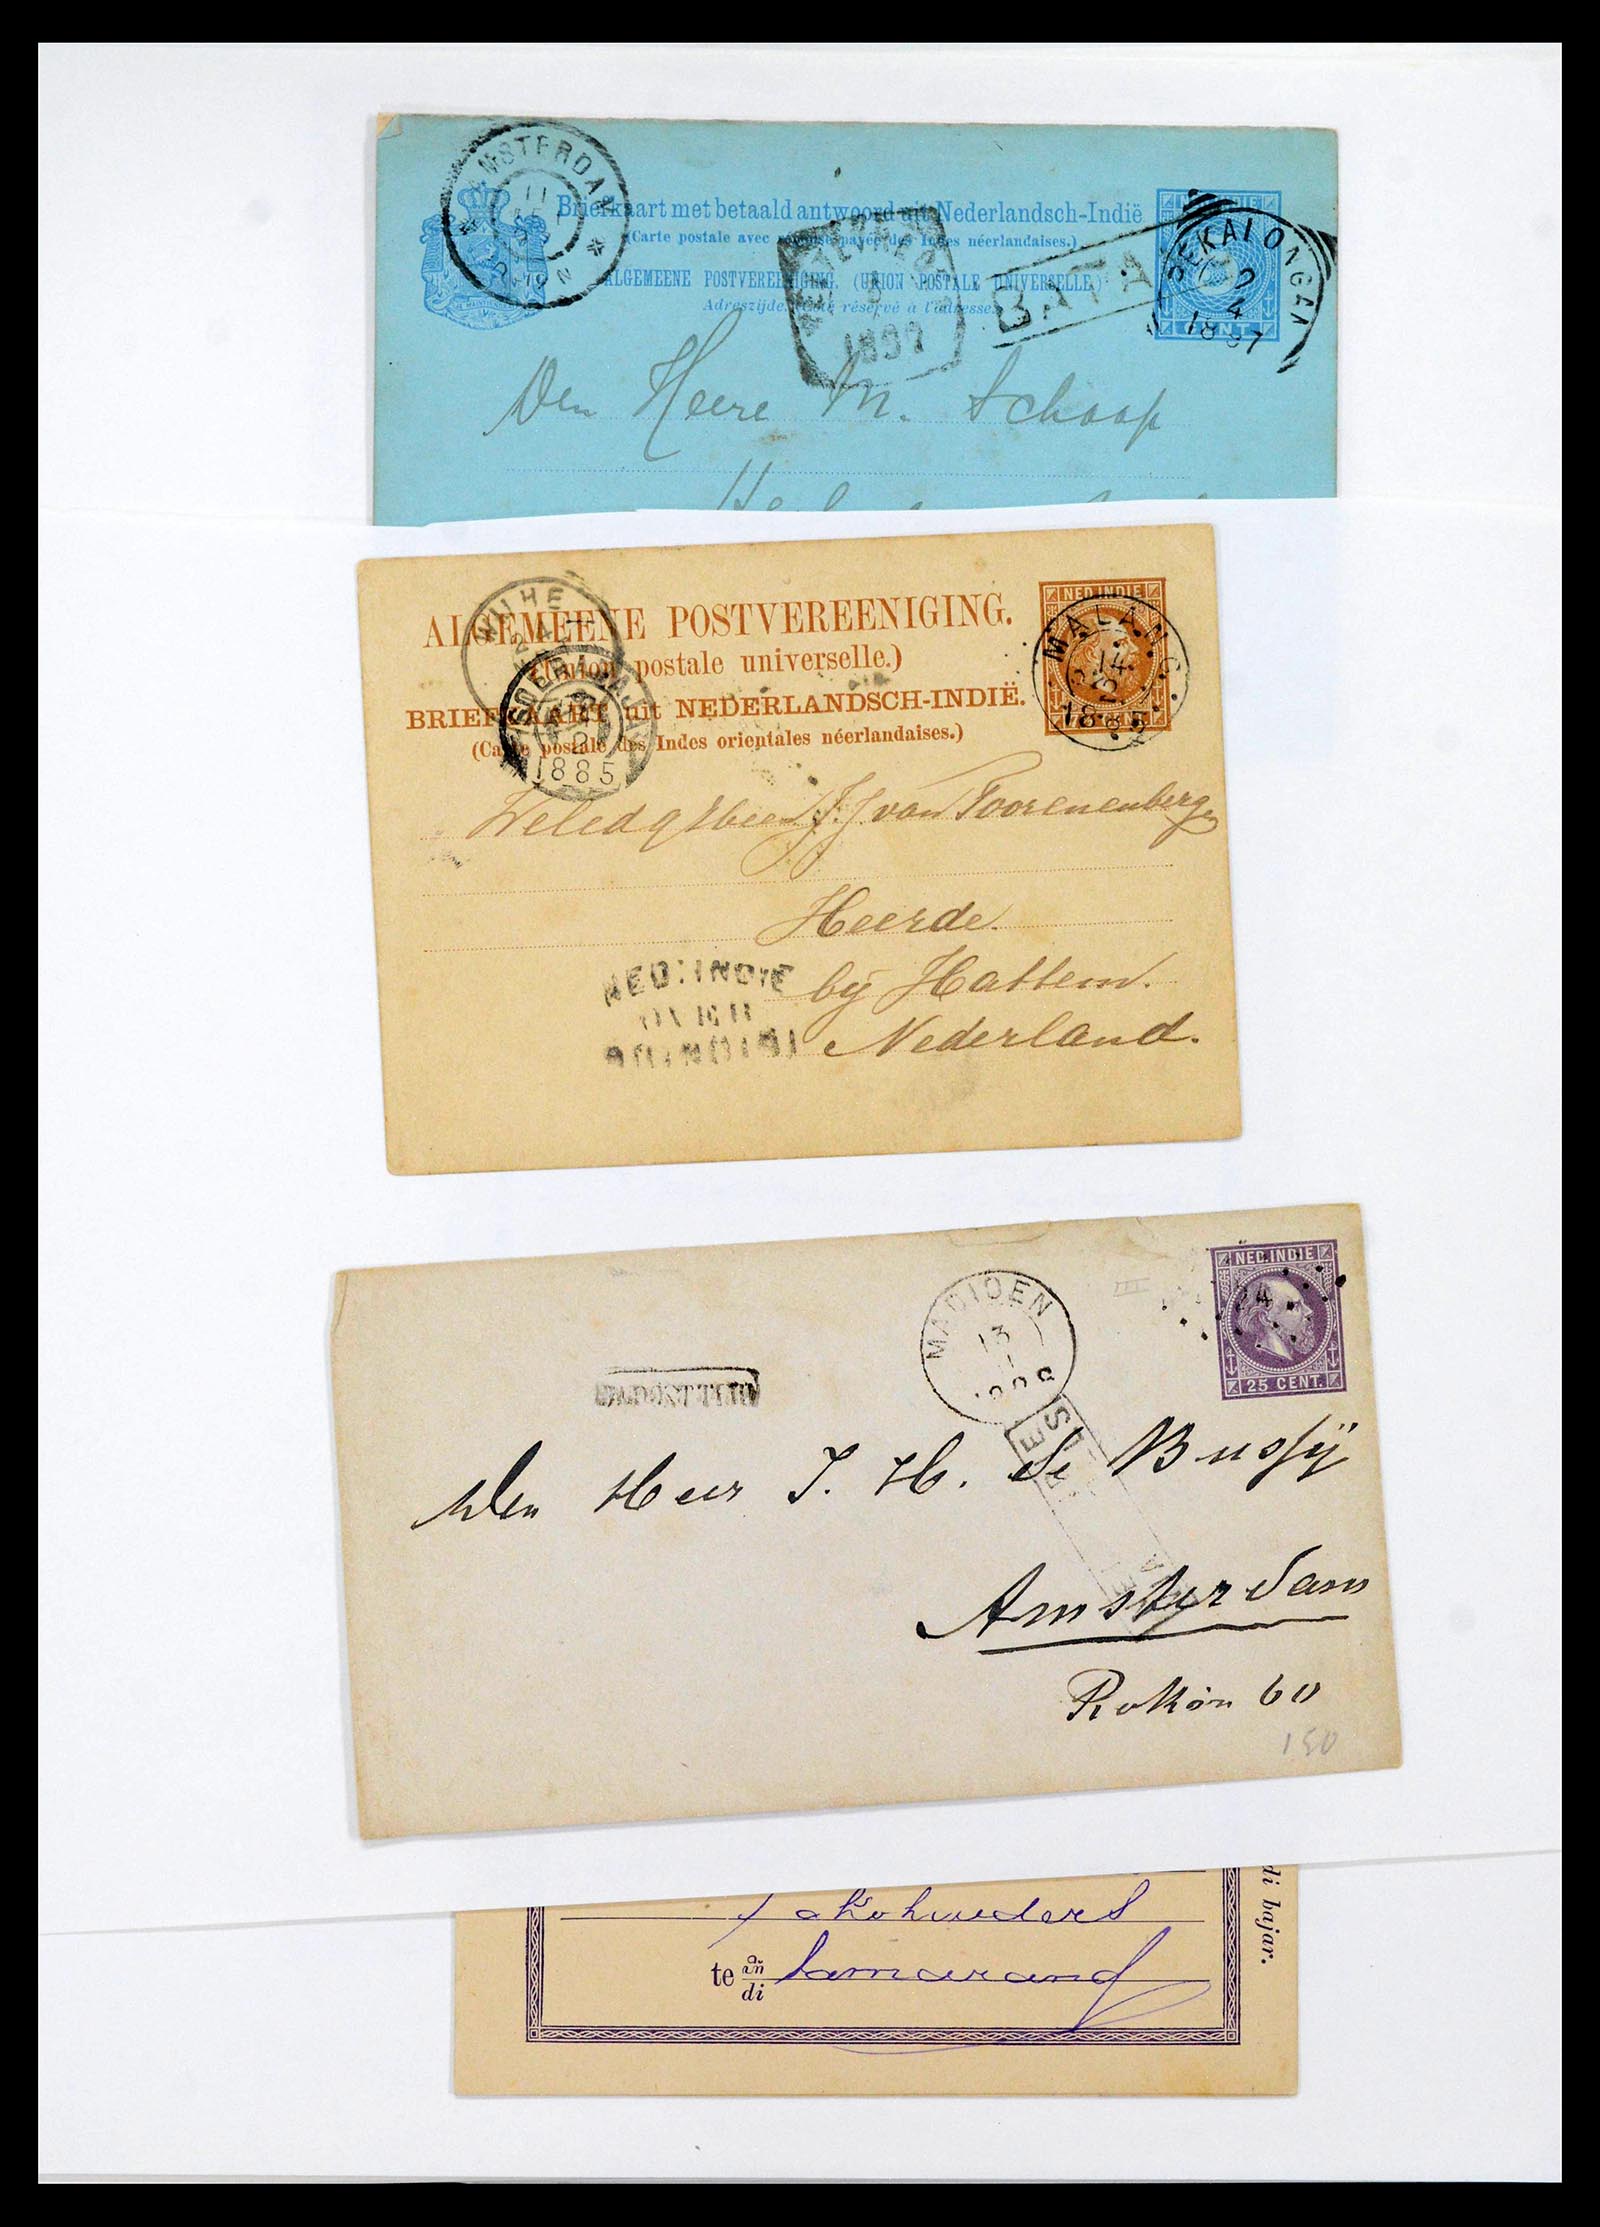 AMSTERDAM
11
Briefkaart met betaald antwoord uit Nederlandsch-Indië
(Carte postale avec réponse payée des Indes néerlandaises.)
ALGEMEENE POSTVEREENIGING. (UNION POSTALE UNIVERSELLE.)
Adreszijde. Côté réservé à l'adresse.
1897
BATA
PEKALONGAN
2
4
1897
CENT.
Den Heere M. Schaap
WIJHE
ALGEMEENE POSTVEREENIGING.
(Union postale universelle.)
BRIEFKAART uit NEDERLANDSCH-INDIË.
(Carte postale des Indes orientales néerlandaises.)
NED. INDIE
CENT.
MALANG
14
2
1885
SOERABAJA
1885
J. J. van Toorenenberg
Heerde.
bij Hattem.
Nederland.
NED: INDIE
NED. INDIE
24
25 CENT.
MADIOEN
13
Den Heer J. H. de Bussÿ
Amsterdam
Rokin 60
150
di bajar.
te añ/di Samarang